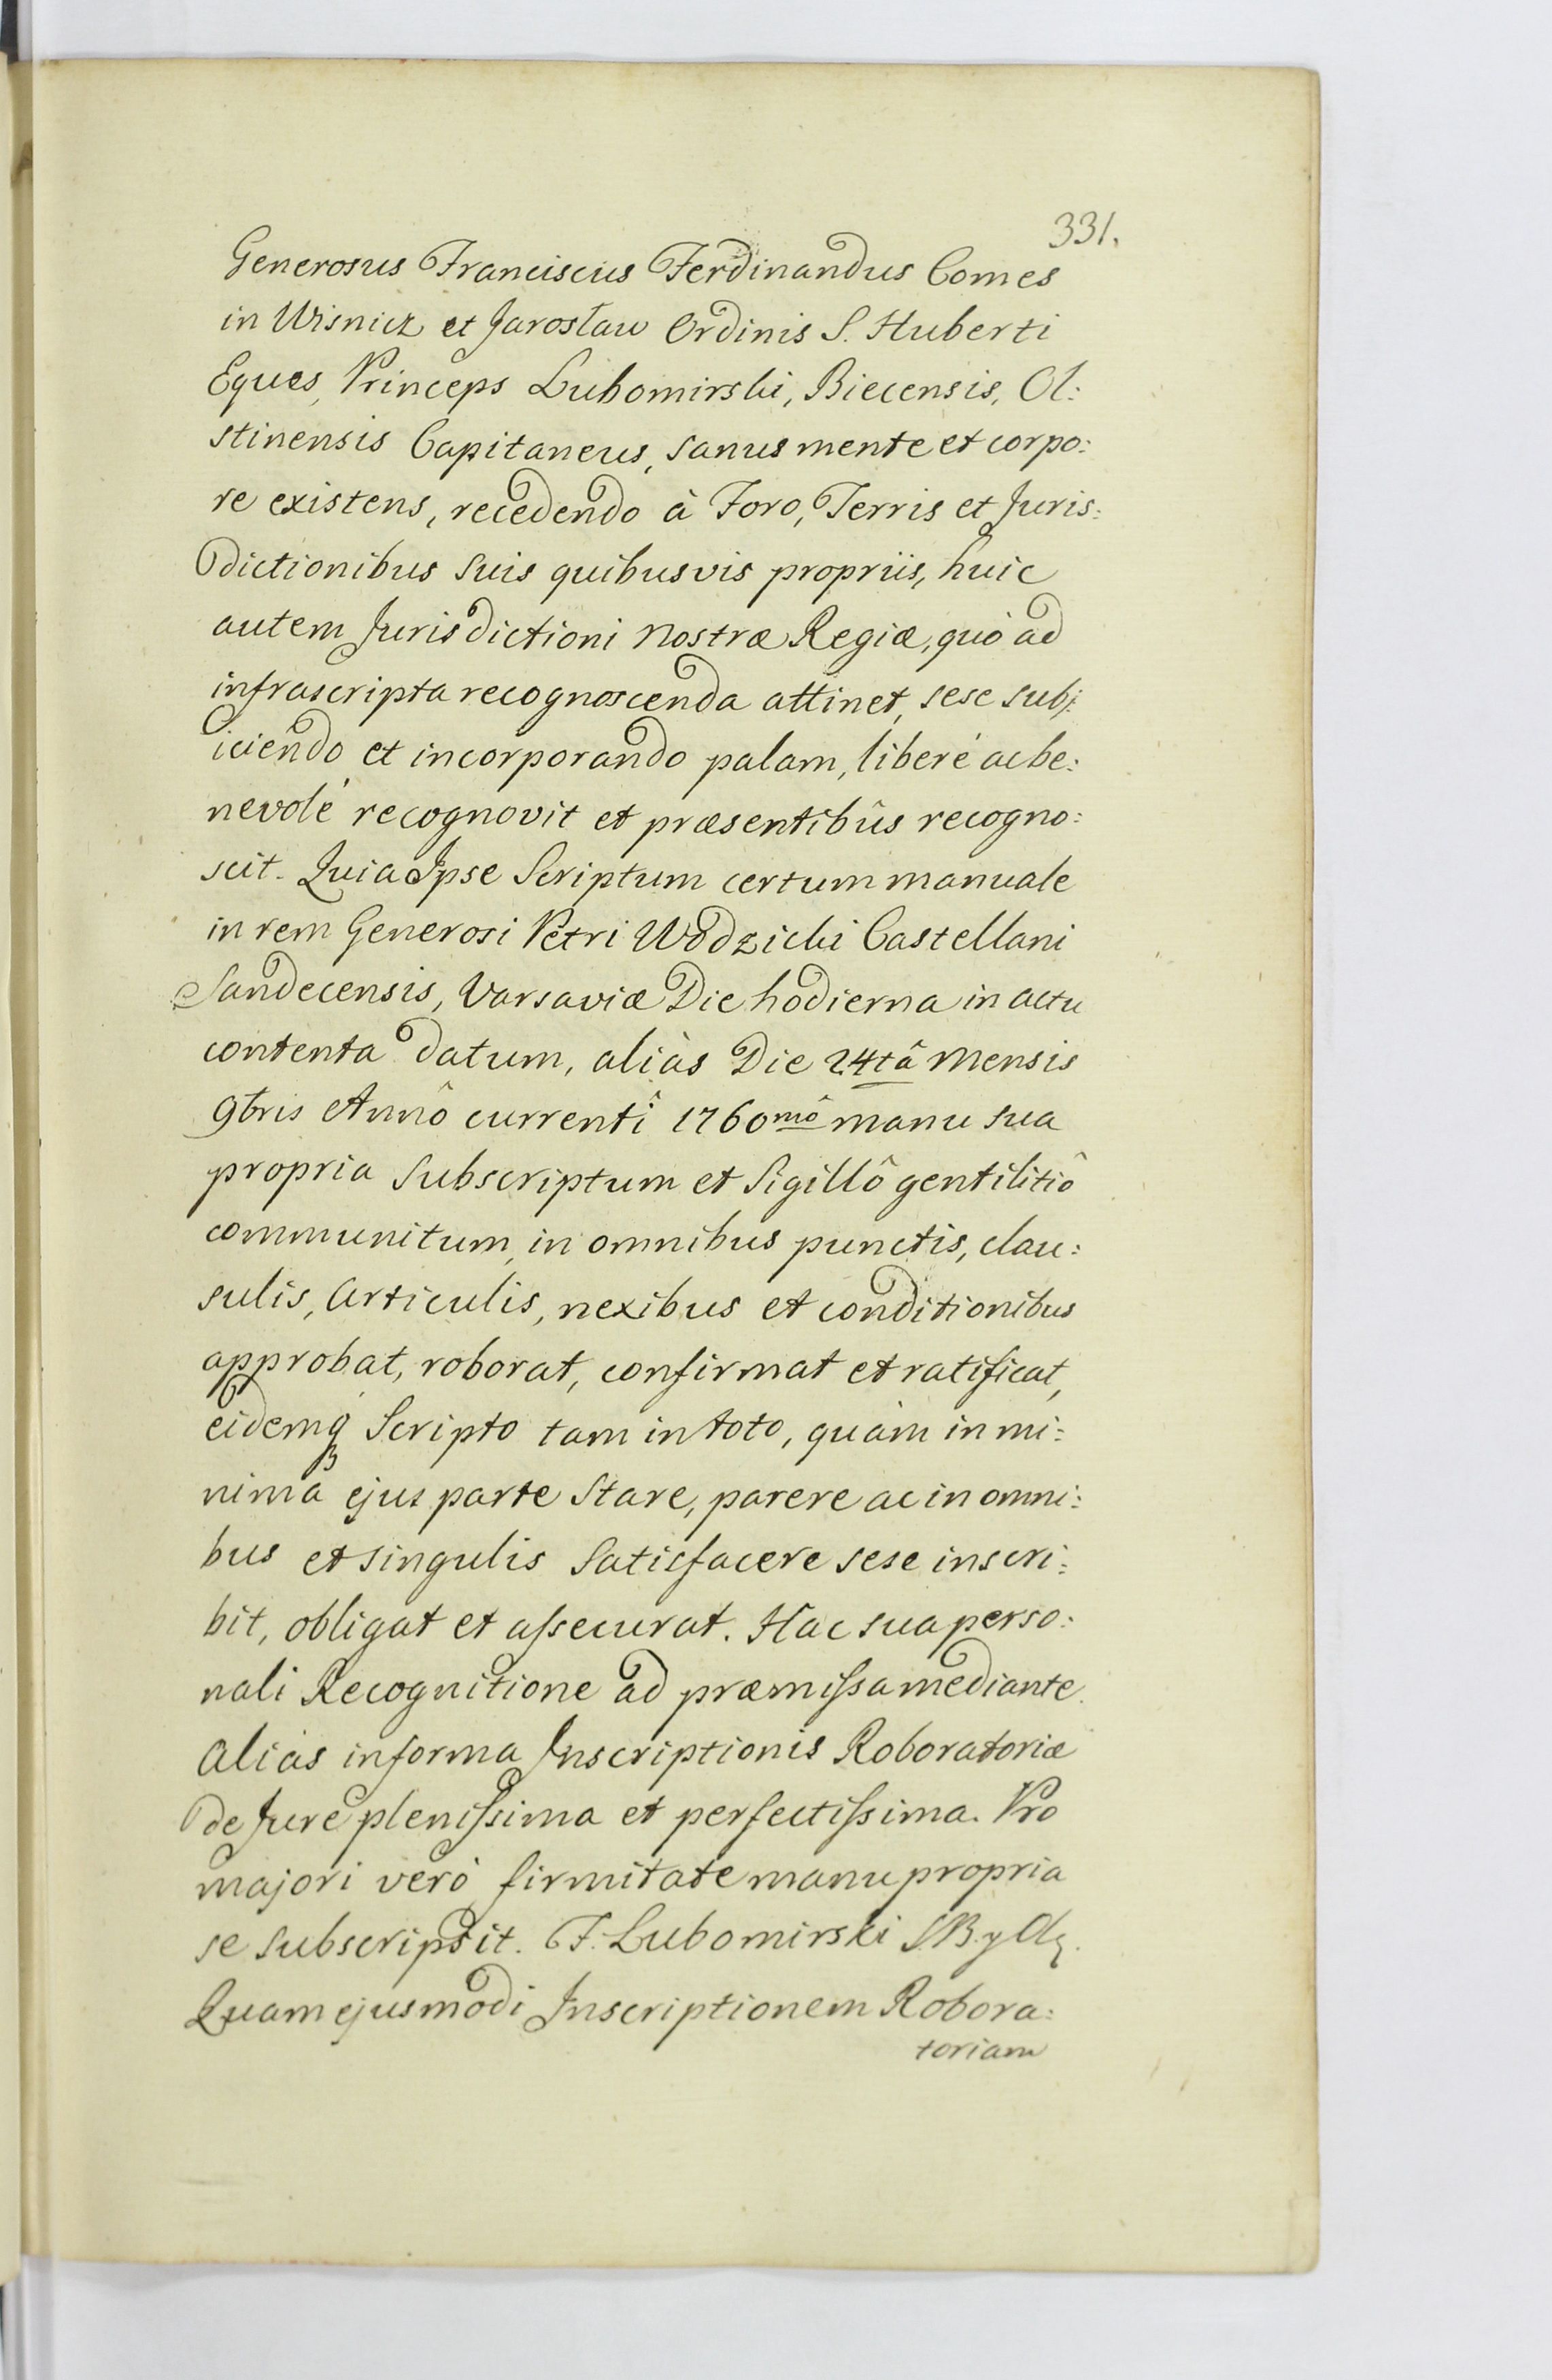 331.
Generosus Franciscus Ferdinandus Comes
in Wisnicz et Jarosław Ordinis S. Huberti
Eques, Princeps Lubomirski, Biecensis, Ol:
stinensis Capitaneus, sanus mente et corpo:
re existens, recedendo à Foro, Terris et Juris:
dictionibus suis quibusvis propriis, huic
autem Jurisdictioni nostræ Regiæ, quò ad
infrascripta recognoscenda attinet, sese subj:
iciendo et incorporando palam, liberé ac be:
nevolé recognovit et præsentibûs recogno:
scit. Quia Ipse Scriptum certum manuale
in rem Generosi Petri Wodzicki Castellani
Sandecensis, Varsaviæ Die hodierna in actu
contenta datum, aliàs Die 24tâ Mensis
9bris Annô currentî 1760mô manu sua
propria subscriptum et Sigillô gentilitiô
communitum, in omnibus punctis, clau:
sulis, articulis, nexibus et conditionibus
approbat, roborat, confirmat et ratificat,
eidemq; Scripto tam in toto, quàm in mi:
nima ejus parte stare, parere ac in omni:
bus et singulis satisfacere sese inscri:
bit, obligat et aſsecurat. Hac sua perso:
nali Recognitione ad præmiſsa mediante.
Aliàs in forma Inscriptionis Roboratoriæ
de Jure pleniſsima et perfectiſsima. Pro
majori verò firmitate manu propria
se subscripsit. F. Lubomirski S.B. y Ol.
Quam ejusmodi Inscriptionem Robora:
toriam